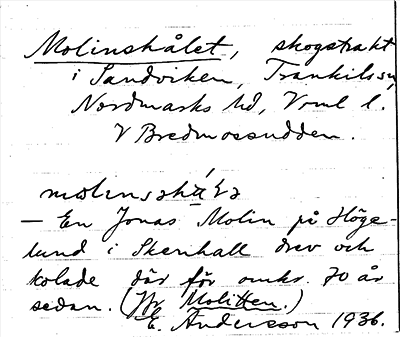 Molinshålet, skogstrakt
i Sandviken, Trankilssn,
Nordmarks hd, Vrml l.
V Bredmossudden.
— En Jonas Molin på Höge-
lund i Skenhall drev och
kolade där för omkr. 70 år
sedan. (Jfr Molitten.)
E. Andersson 1936.